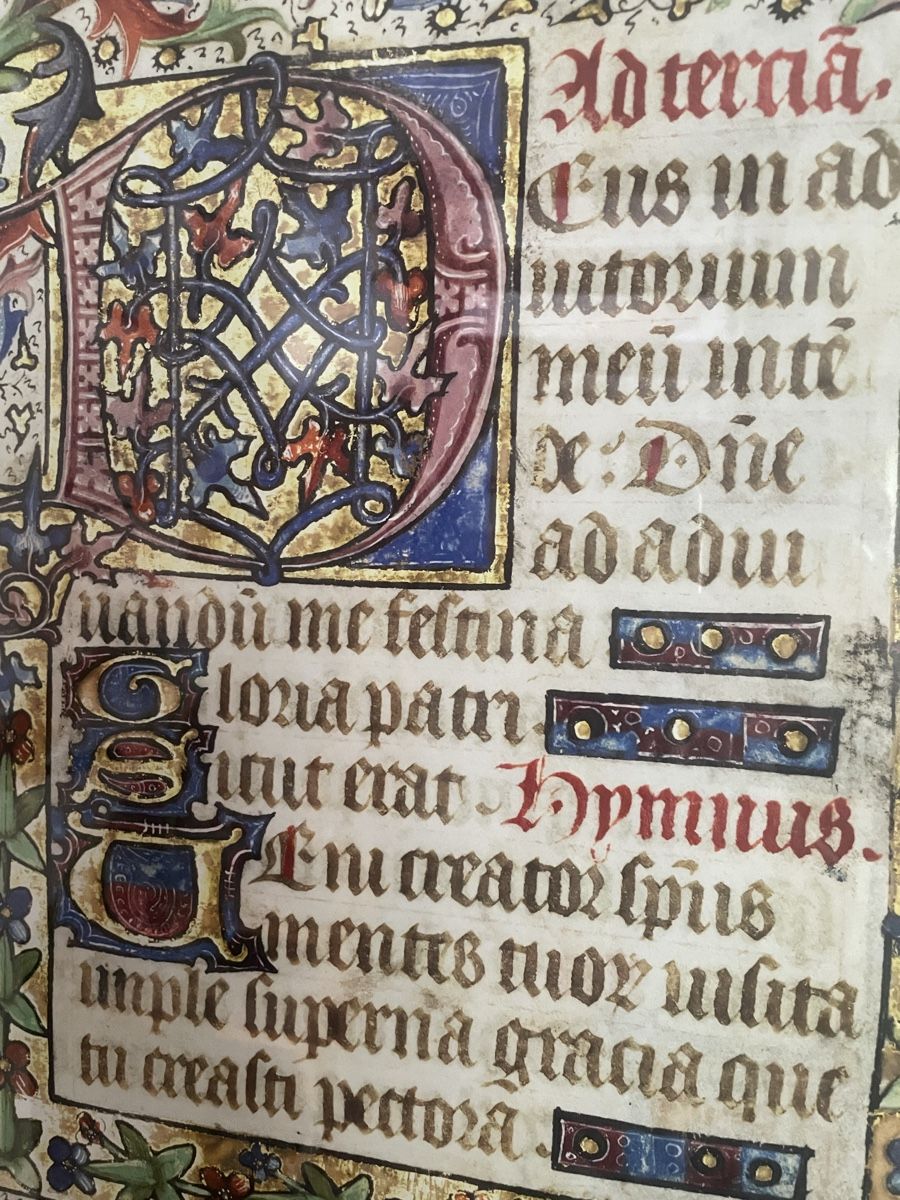 Ad terciā.
DEus in ad
iutorium
meū intē
de: Dn̄e
ad adiu
uandū me festina
Gloria patri.
Sicut erat. Hymnus.
UEni creator sp̄us
mentes tuoꝝ uisita
imple superna gracia que
tu creasti pectora.